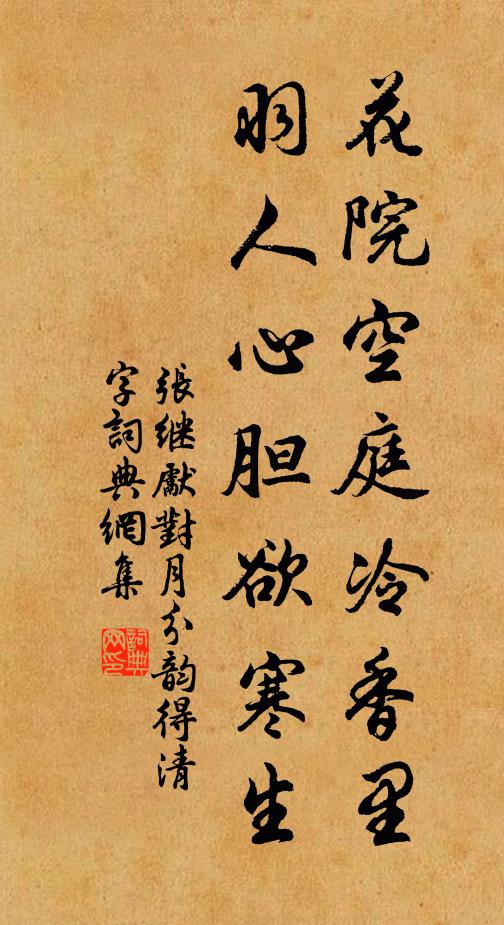 花院空庭冷香里
羽人心胆欲寒生
張继獻對月分韵得清
字詞典網集
詞典
网印